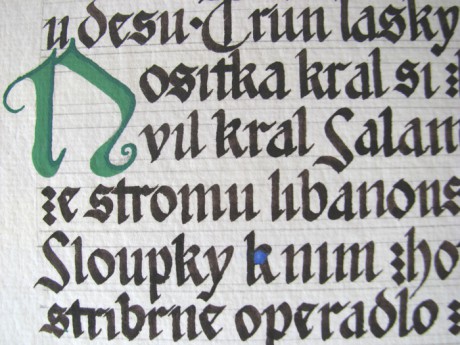 u desu · Trun lasky
Nositka kral si z
vil kral Salam
ze stromu libanons
Sloupky k nim zho
stribrne operadlo z